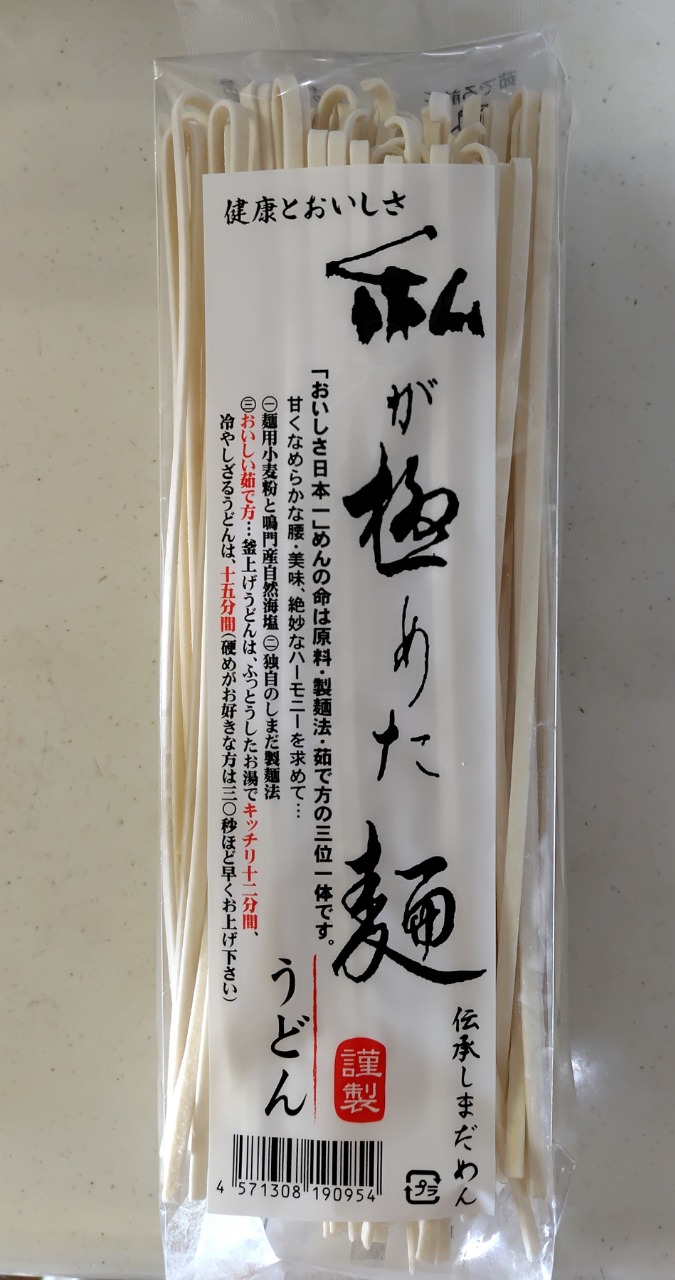 健康とおいしさ
私が極めた麺
「おいしさ日本一」めんの命は原料・製麺法・茹で方の三位一体です。
甘くなめらかな腰・美味、絶妙なハーモニーを求めて…
㊀麺用小麦粉と鳴門産自然海塩㊁独自のしまだ製麺法
㊂おいしい茹で方…釜上げうどんは、ふっとうしたお湯でキッチリ十二分間、
冷やしざるうどんは、十五分間(硬めがお好きな方は三〇秒ほど早くお上げ下さい)
うどん
謹製
伝承しまだめん
プラ
4 571308 190954